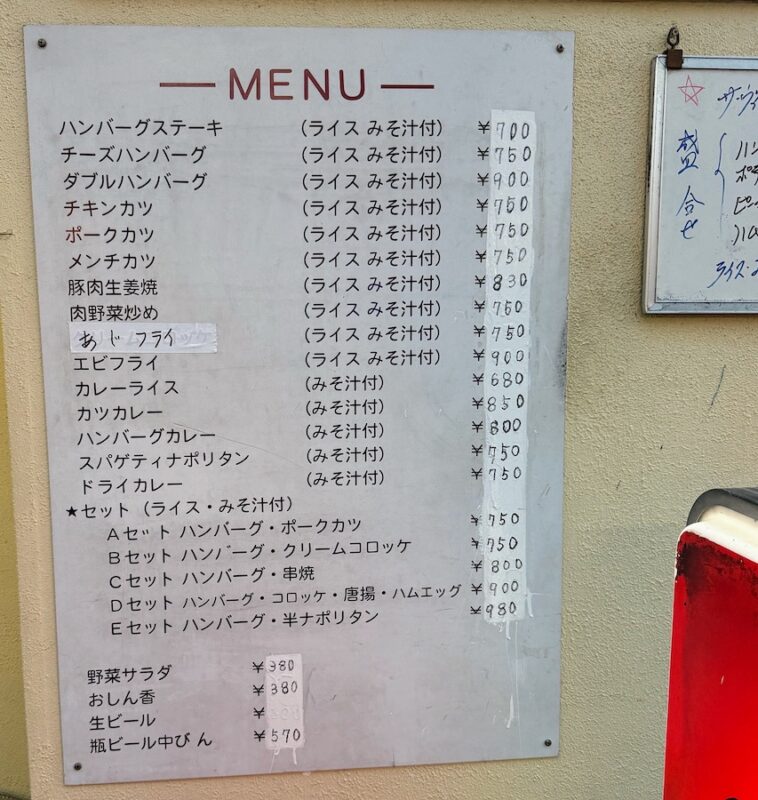 MENU
ハンバーグステーキ (ライス みそ汁付) ¥700
チーズハンバーグ (ライス みそ汁付) ¥750
ダブルハンバーグ (ライス みそ汁付) ¥900
チキンカツ (ライス みそ汁付) ¥750
ポークカツ (ライス みそ汁付) ¥750
メンチカツ (ライス みそ汁付) ¥750
豚肉生姜焼 (ライス みそ汁付) ¥830
肉野菜炒め (ライス みそ汁付) ¥760
あじフライ (ライス みそ汁付) ¥750
エビフライ (ライス みそ汁付) ¥900
カレーライス (みそ汁付) ¥680
カツカレー (みそ汁付) ¥850
ハンバーグカレー (みそ汁付) ¥800
スパゲティナポリタン (みそ汁付) ¥750
ドライカレー (みそ汁付) ¥750
★セット (ライス・みそ汁付)
Aセット ハンバーグ・ポークカツ ¥750
Bセット ハンバーグ・クリームコロッケ ¥750
Cセット ハンバーグ・串焼 ¥800
Dセット ハンバーグ・コロッケ・唐揚・ハムエッグ ¥900
Eセット ハンバーグ・半ナポリタン ¥980
野菜サラダ ¥380
おしん香 ¥380
生ビール ¥
瓶ビール中びん ¥570
盛合せ
ライス